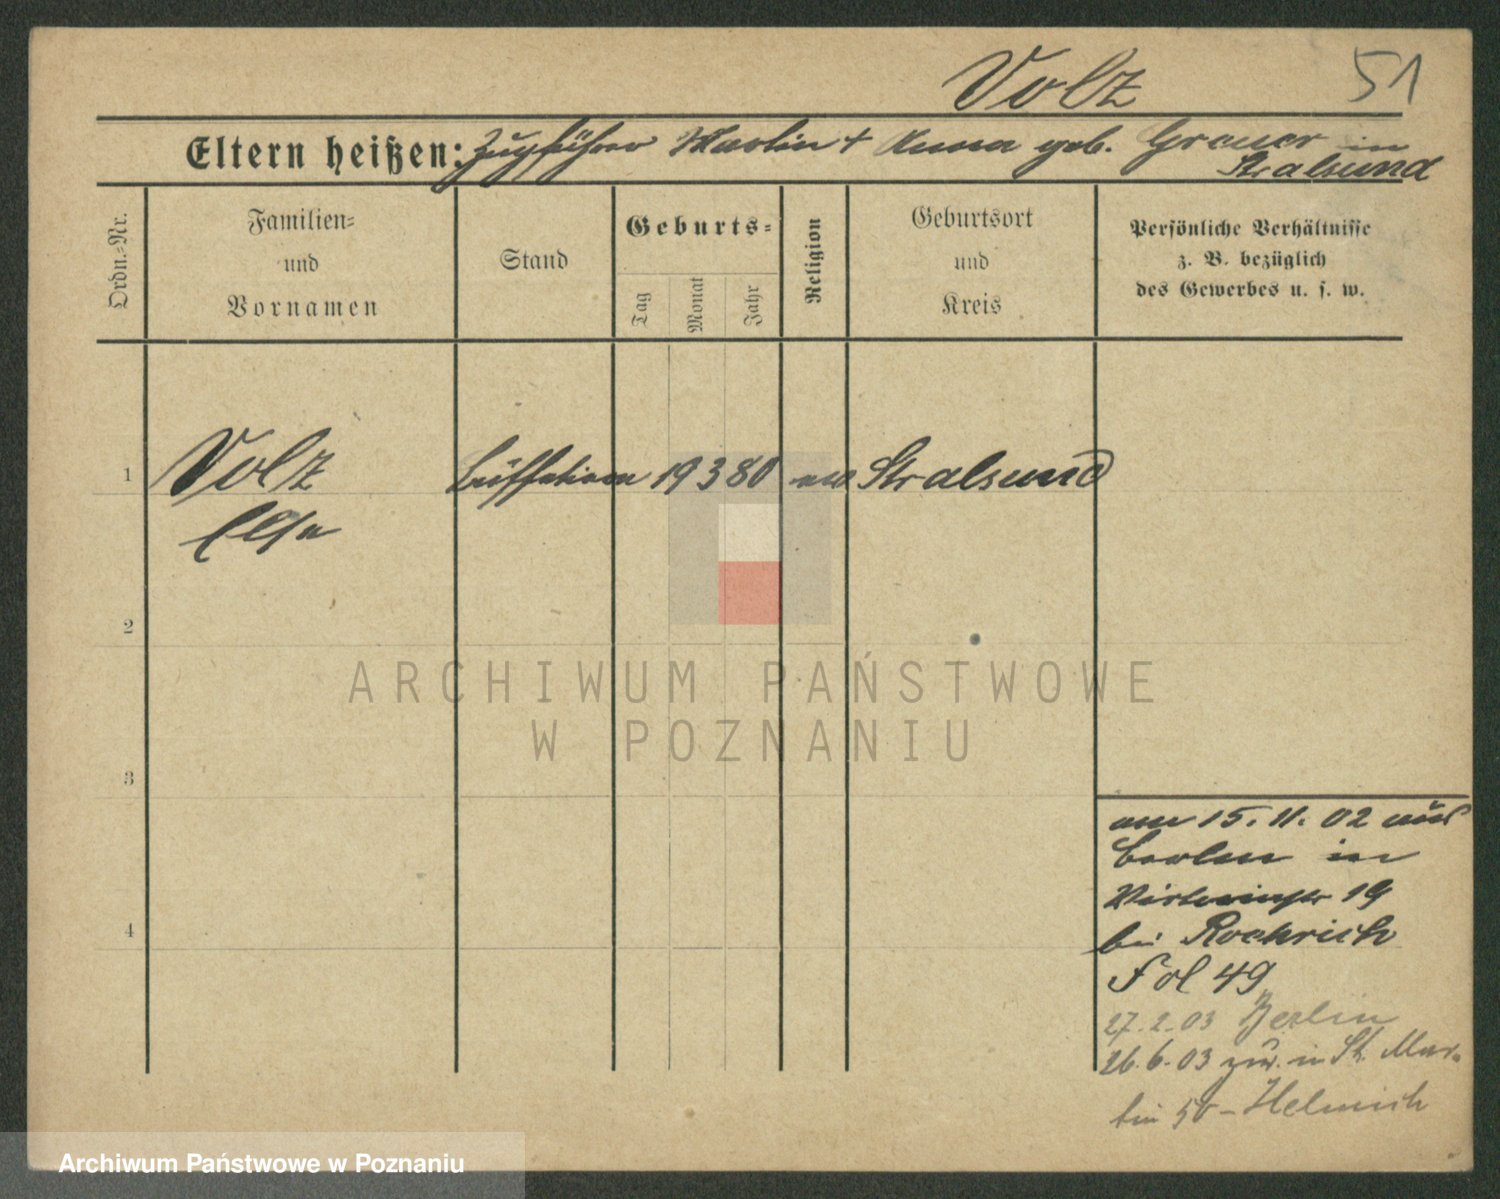 Volz 51
Eltern heißen: Zugführer Martin + Anna geb. Greuer in
Stralsund
Ordn.-Nr.
Familien-
und
Vornamen
Stand
Geburts-
Tag
Monat
Jahr
Religion
Geburtsort
und
Kreis
Persönliche Verhältnisse
z. B. bezüglich
des Gewerbes u. s. w.
1 Volz Büffetiere 19 3 80 ev Stralsund
Elsa
2
3
4
am 15. 11. 02 aus
Berlin in
19
bei Roehrich
Fol 49
27. 2. 03 Berlin
26. 6. 03 zur. in St. Mar-
tin 50 - Helmich
ARCHIWUM PAŃSTWOWE
W POZNANIU
Archiwum Państwowe w Poznaniu